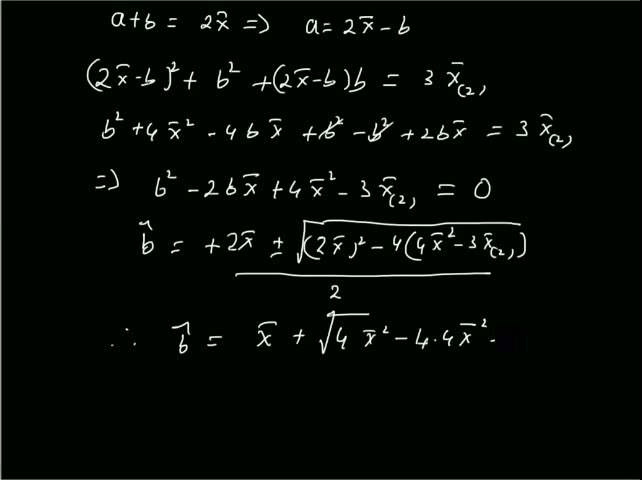 a+b = 2x̄ => a = 2x̄ - b
(2x̄-b)² + b² + (2x̄-b)b = 3 x̄₍₂₎
b² + 4x̄² - 4bx̄ + b² - b² + 2bx̄ = 3 x̄₍₂₎
=> b² - 2bx̄ + 4x̄² - 3x̄₍₂₎ = 0
b̂ = +2x̄ ± √((2x̄)² - 4(4x̄² - 3x̄₍₂₎))
2
∴ b̂ = x̄ + √(4x̄² - 4·4x̄² -